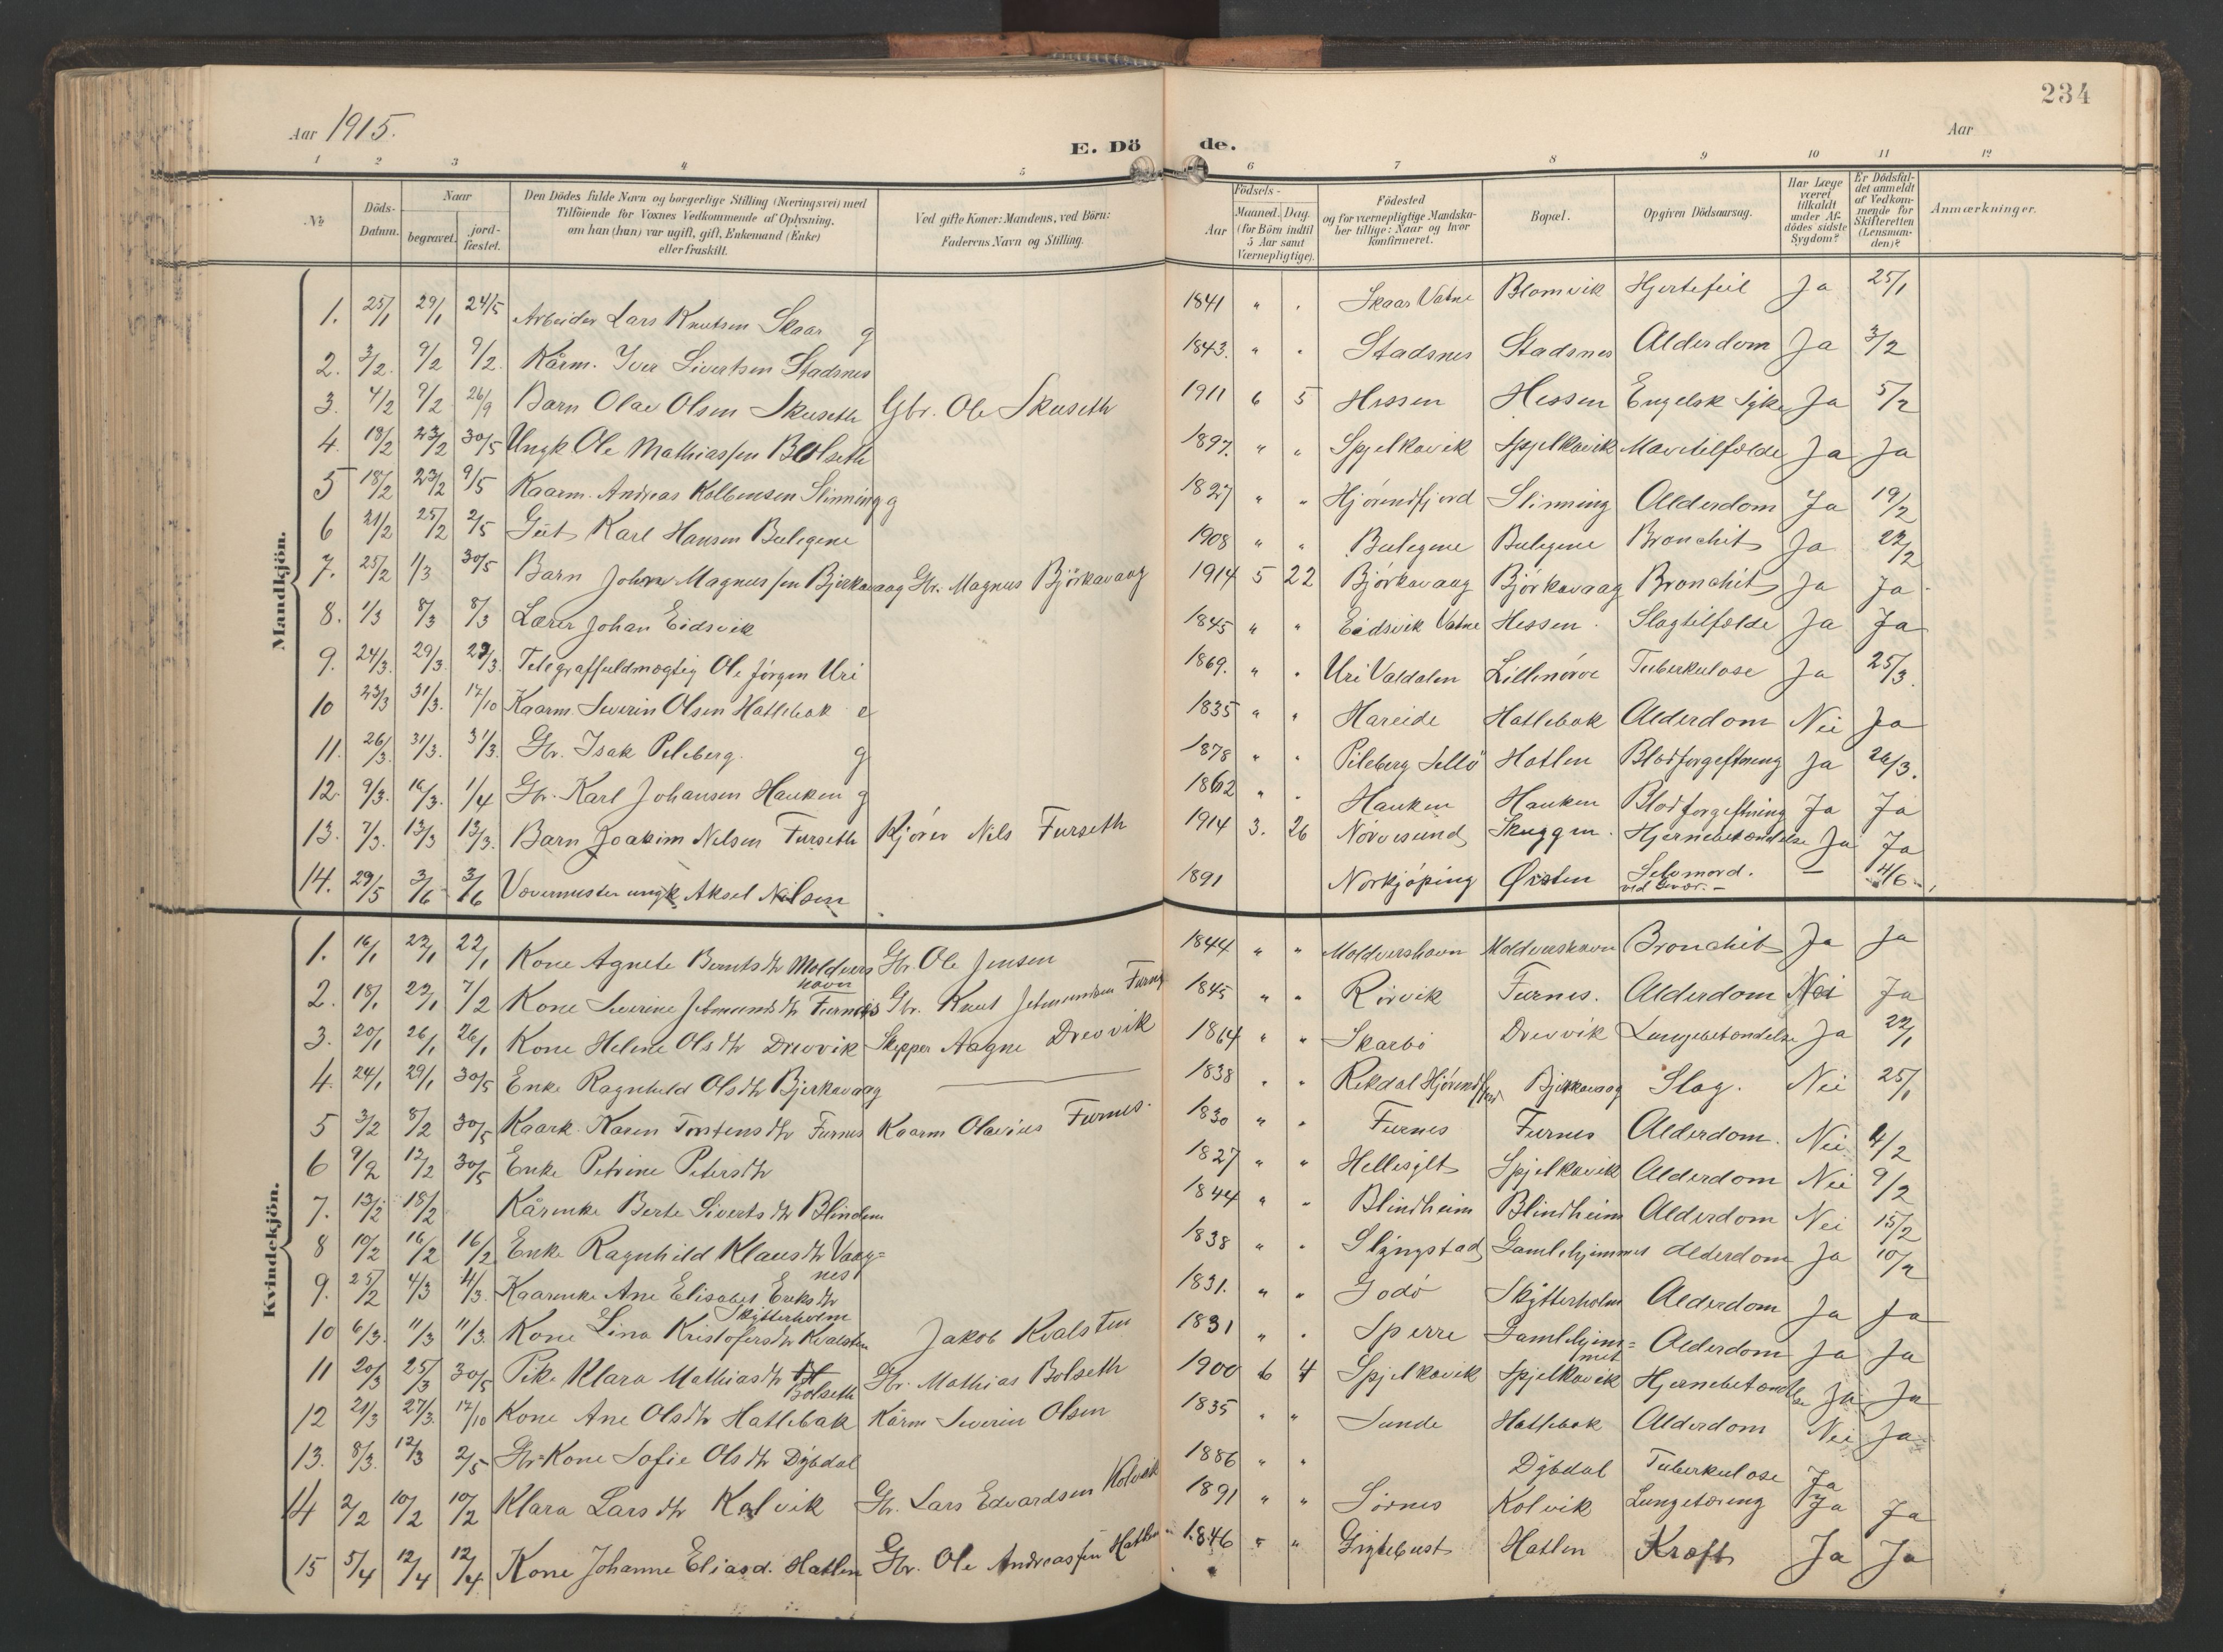 234
Aar 1915.
E. Dö de.
Aar
1 2 3 4 5 6 7 8 9 10 11 12
No
Döds-Datum.
Naar
begravet.
jord-fæstet.
Den Dödes fulde Navn og borgerlige Stilling (Næringsvei) med
Tilföiende for Voxnes Vedkommende af Oplysning.
om han (hun) var ugift, gift, Enkemand (Enke)
eller fraskilt.
Ved gifte Koner: Mandens, ved Börn:
Faderens Navn og Stilling.
Födsels-
Aar
Maaned. Dag.
(for Börn indtil
5 Aar samt
Værnepligtige).
Födested
og for værnepligtige Mandska-
ber tillige: Naar og hvor
konfirmeret.
Bopæl.
Opgiven Dödsaarsag.
Har Læge
været
tilkaldt
under Af-
dödes sidste
Sygdom?
Er Dödsfal-
det anmeldt
af Vedkom-
mende for
Skifteretten
(Lensman-
den)?
Anmærkninger.
Mandkjön.
1. 25/1 29/1 24/5 Arbeider Lars Knutsen Skaar g 1841 " " Skaar Vatne Blomvik Hjertefeil Ja 25/1
2. 3/2. 9/2 9/2. Kårm. Iver Sivertsen Stadsnes 1843. " " Stadsnes Stadsnes Alderdom Ja 3/2
3. 4/2 9/2 26/9 Barn Olav Olsen Skuseth Gbr. Ole Skuseth 1911 6 5 Hessen Hessen Engelsk Syke Ja 5/2
4. 18/2 23/2 30/5 Ungk Ole Mathiassen Bolseth 1897. " " Spjelkavik Spjelkavik Mavetilfælde Ja Ja
5 18/2 23/2 9/5 Kaarm. Andreas Kolbensen Slinning g 1827 " " Hjörendfjord Slinning Alderdom Ja 19/2
6 21/2 25/2 2/5 Gut Karl Hansen Bulegene 1908 " " Bulegene Bulegene Bronchit Ja 22/2
7. 25/2 1/3 30/5 Barn Johan Magnussen Bjerkavaag Gbr. Magnus Björkavaag 1914 5 22 Björkavaag Björkavaag Bronchit Ja Ja
8. 1/3 8/3 8/3 Lærer Johan Eidsvik 1845 " " Eidsvik Vatne Hessen. Slagtilfælde Ja Ja
9. 24/3. 29/3. 29/3. Telegraffuldmægtig Ole Jörgen Uri 1869. " " Uri Valdalen Lillenörve Tuberkulose Ja 25/3.
10 23/3 31/3. 17/10 Kaarm. Severin Olsen Hatlebak e 1835 " " Hareide Hatlebak Alderdom Nei Ja
11. 26/3. 31/3. 31/3. Gbr. Isak Peleberg. g 1878 " " Pileberg Hatlen Blodforgeftning Ja 26/3.
12. 9/3. 16/3. 1/4 Gbr. Karl Johansen Hauken g 1862 " " Hauken Hauken Blodforgeftning Ja Ja
13. 7/3. 13/3 13/3. Barn Joakim Nilsen Furseth Kjörer Nils Furseth 1914 3. 26 Nörvesund Skuggen. Hjernebetændelse Ja Ja
14. 29/5 3/6 3/6 Vævemester ungk. Aksel Nilsen 1891 Norkjöping Ørsten Selvmord. ved Gevær. — — 14/6
Kvindekjön.
1. 16/1 22/1 22/1 Kone Agnete Berntsdtr Moldvershavn Gbr. Ole Jensen 1844 " " Moldvershavn Moldværshavn Bronchit Ja Ja
2. 18/1 22/1 7/2 Kone Severine Jetmundsdtr Furnes Gbr. Knut Jetmundsen Furnes 1845 " " Rörvik Furnes. Alderdom Nei Ja
3. 20/1 26/1 26/1 Kone Helene Olsdtr Drevvik Skipper Aagne Drevvik 1864 " " Skarbö Drevvik Lungebetændelse Ja 22/1
4. 24/1 29/1 30/5 Enke Ragnhild Olsdtr Bjerkavaag — 1838 " " Rekdal Hjörendfjord Bjerkavaag Slag. Nei 25/1
5 3/2 8/2 30/5 Kaark. Karen Torstensdtr Furnes Kaarm Olavius Furnes. 1830 " " Furnes Furnes Alderdom. Nei 4/2
6 9/2 12/2 30/5 Enke Petrine Petersdtr 1827 " " Hellesylt Spjelkavik Alderdom Nei 9/2
7. 13/2 18/2 Kårenke Berte Sivertsdtr Blindem 1844 " " Blindheim Blindheim Alderdom Nei 15/2
8 10/2 16/2 16/2 Enke Ragnhild Klausdtr Vaagnes 1838 " " Slyngstad Gamlehjemmet Alderdom Ja 10/2
9. 25/2 4/3 4/3. Kaarenke Ane Elisabet Eriksdtr Skytterholm 1831. " " Godö Skytterholm Alderdom Ja Ja
10 6/3. 11/3 11/3. Kone Lina Kristofersdtr Kvalsten Jakob Kvalsten 1831 " " Sperre Gamlehjemmet Alderdom Ja Ja
11 20/3 25/3 30/5 Pike Klara Mathiasdtr Bolseth Gbr. Mathias Bolseth 1900 6 4 Spjelkavik Spjelkavik Hjernebetændelse Ja Ja
12 21/3 27/3. 17/10 Kone Ane Olsdtr Hatlebak Kårm Severin Olsen 1835 " " Sunde Hatlebak Alderdom Nei Ja
13. 8/3. 12/3 2/5 Gbr=Kone Sofie Olsdtr Dybdal 1886 " " Dybdal Tuberkulose Ja
14 2/2 10/2 10/2 Klara Larsdtr Kolvik Gbr. Lars Edvardsen Kolvik 1891 " " Sörnes Kolvik Lungetæring Ja Ja
15 5/4 12/4 12/4 Kone Johanne Eliasd. Hatlen Gbr. Ole Andreassen Hatlen 1846 " " Gigtebust Hatlen Kræft Ja Ja